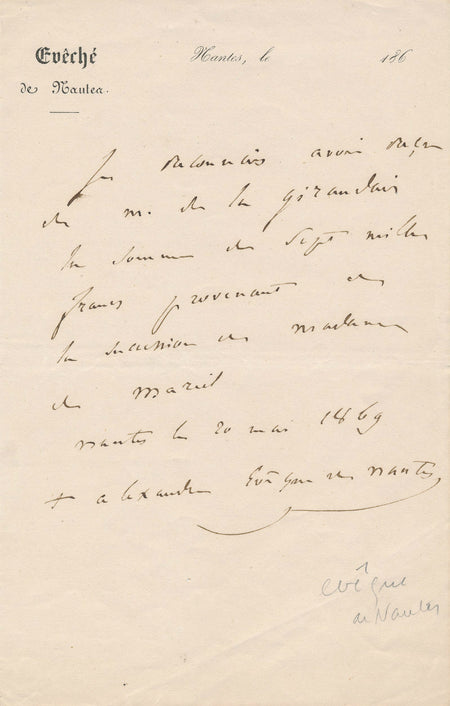 Evêché
de Nantes.
Nantes, le 186
Je reconnais avoir reçu
de m. de la Giraudais
la somme de sept mille
francs provenant de
la succession de madame
de mareil
nantes le 20 mai 1869
+ alexandre Evêque de nantes
evêque
de Nantes